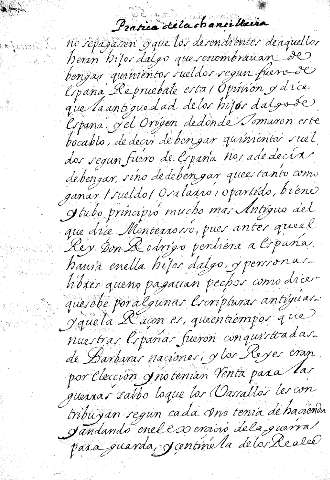 Pratica de la chancilleria
no se pagasen y que los desendientes de aquellos
heran hijos dalgo que se nombravan de
bengar quinientos sueldos segun fuero de
España Repruebale esta Opinion, y dice
que la antiguedad de los hijos dalgo de
España y el Origen de donde tomaron este
bocablo, de decir de bengar quinientos suel
dos segun fuero de España no sea de decir
debengar, sino de bengar que es tanto como
ganar sueldo, O salario, o partido, biene
y tubo principio mucho mas Antiguo del
que dice Menterroso, pues antes que el
Rey Don Rodrigo perdiere a España
havia en ella hijos dalgo, y personas
libres que no pagavan pechos como dice
que sobe por algunas Escripturas antiguas
y que la Raçon es, que en tiempos que
nuestras Españas fueron conquistadas
de Barbaras naciones, y los Reyes eran
por Elección y no tenian Renta para las
guerras salbo lo que los Vasallos les con
tribuyan segun cada Uno tenia de hacienda
y andando en el exercicio de la guerra
para guarda, y centinela de los Reales